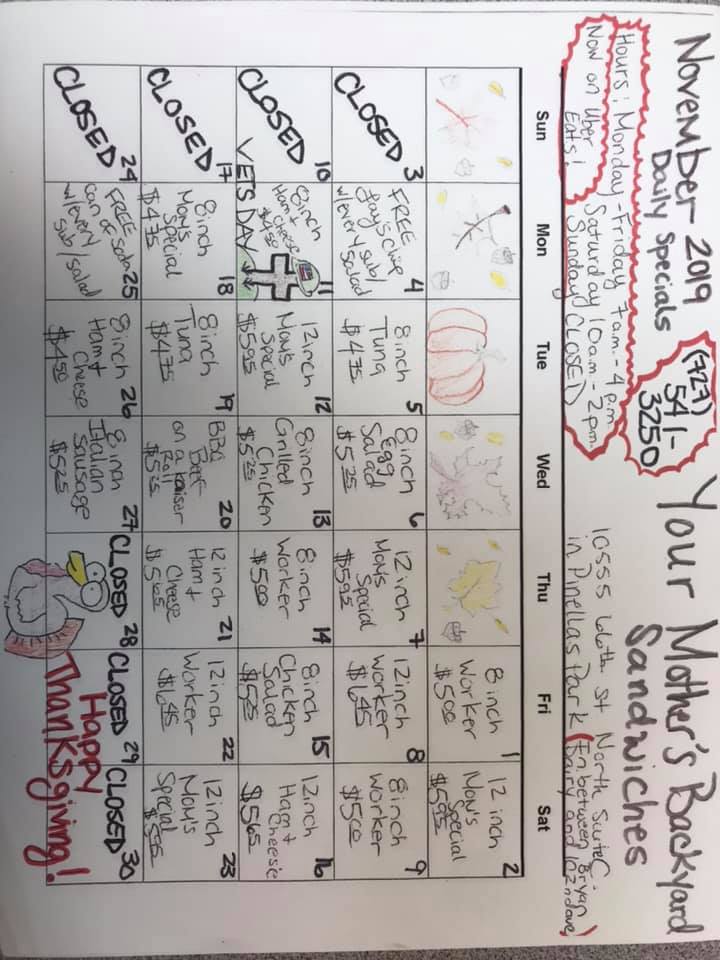 November 2019
Daily Specials
(727)
541-
3250
Your Mother's Backyard
Sandwiches
Hours: Monday-Friday 7a.m.-4p.m.
Saturday 10a.m.-2p.m.
Sunday CLOSED
Now on Uber
Eats!
10555 66th St North Suite C
in Pinellas Park (In between Bryan
Dairy and 102nd ave)
Sun Mon Tue Wed Thu Fri Sat
1
8 inch
Worker
$5.00
2
12 inch
Mom's
Special
$5.95
3
CLOSED
4
FREE
Jay's Chip
w/every sub/
Salad
5
8 inch
Tuna
$4.75
6
8 inch
Egg
Salad
$5.25
7
12 inch
Mom's
Special
$5.95
8
12 inch
Worker
$6.45
9
8 inch
Worker
$5.00
10
CLOSED
11
8 inch
Ham &
Cheese
$4.50
VETS DAY
12
12 inch
Mom's
Special
$5.95
13
8 inch
Grilled
Chicken
$5.25
14
8 inch
Worker
$5.00
15
8 inch
Chicken
Salad
$5.25
16
12 inch
Ham &
Cheese
$5.65
17
CLOSED
18
8 inch
Mom's
Special
$4.75
19
8 inch
Tuna
$4.75
20
BBQ
Beef
on a Kaiser
Roll
21
12 inch
Ham &
Cheese
$5.65
22
12 inch
Worker
$6.45
23
12 inch
Mom's
Special
$5.95
24
CLOSED
25
FREE
can of soda
w/every
sub/salad
26
8 inch
Ham &
Cheese
$4.50
27
8 inch
Italian
Sausage
$5.25
28
CLOSED
29
CLOSED
30
CLOSED
Happy
Thanksgiving!